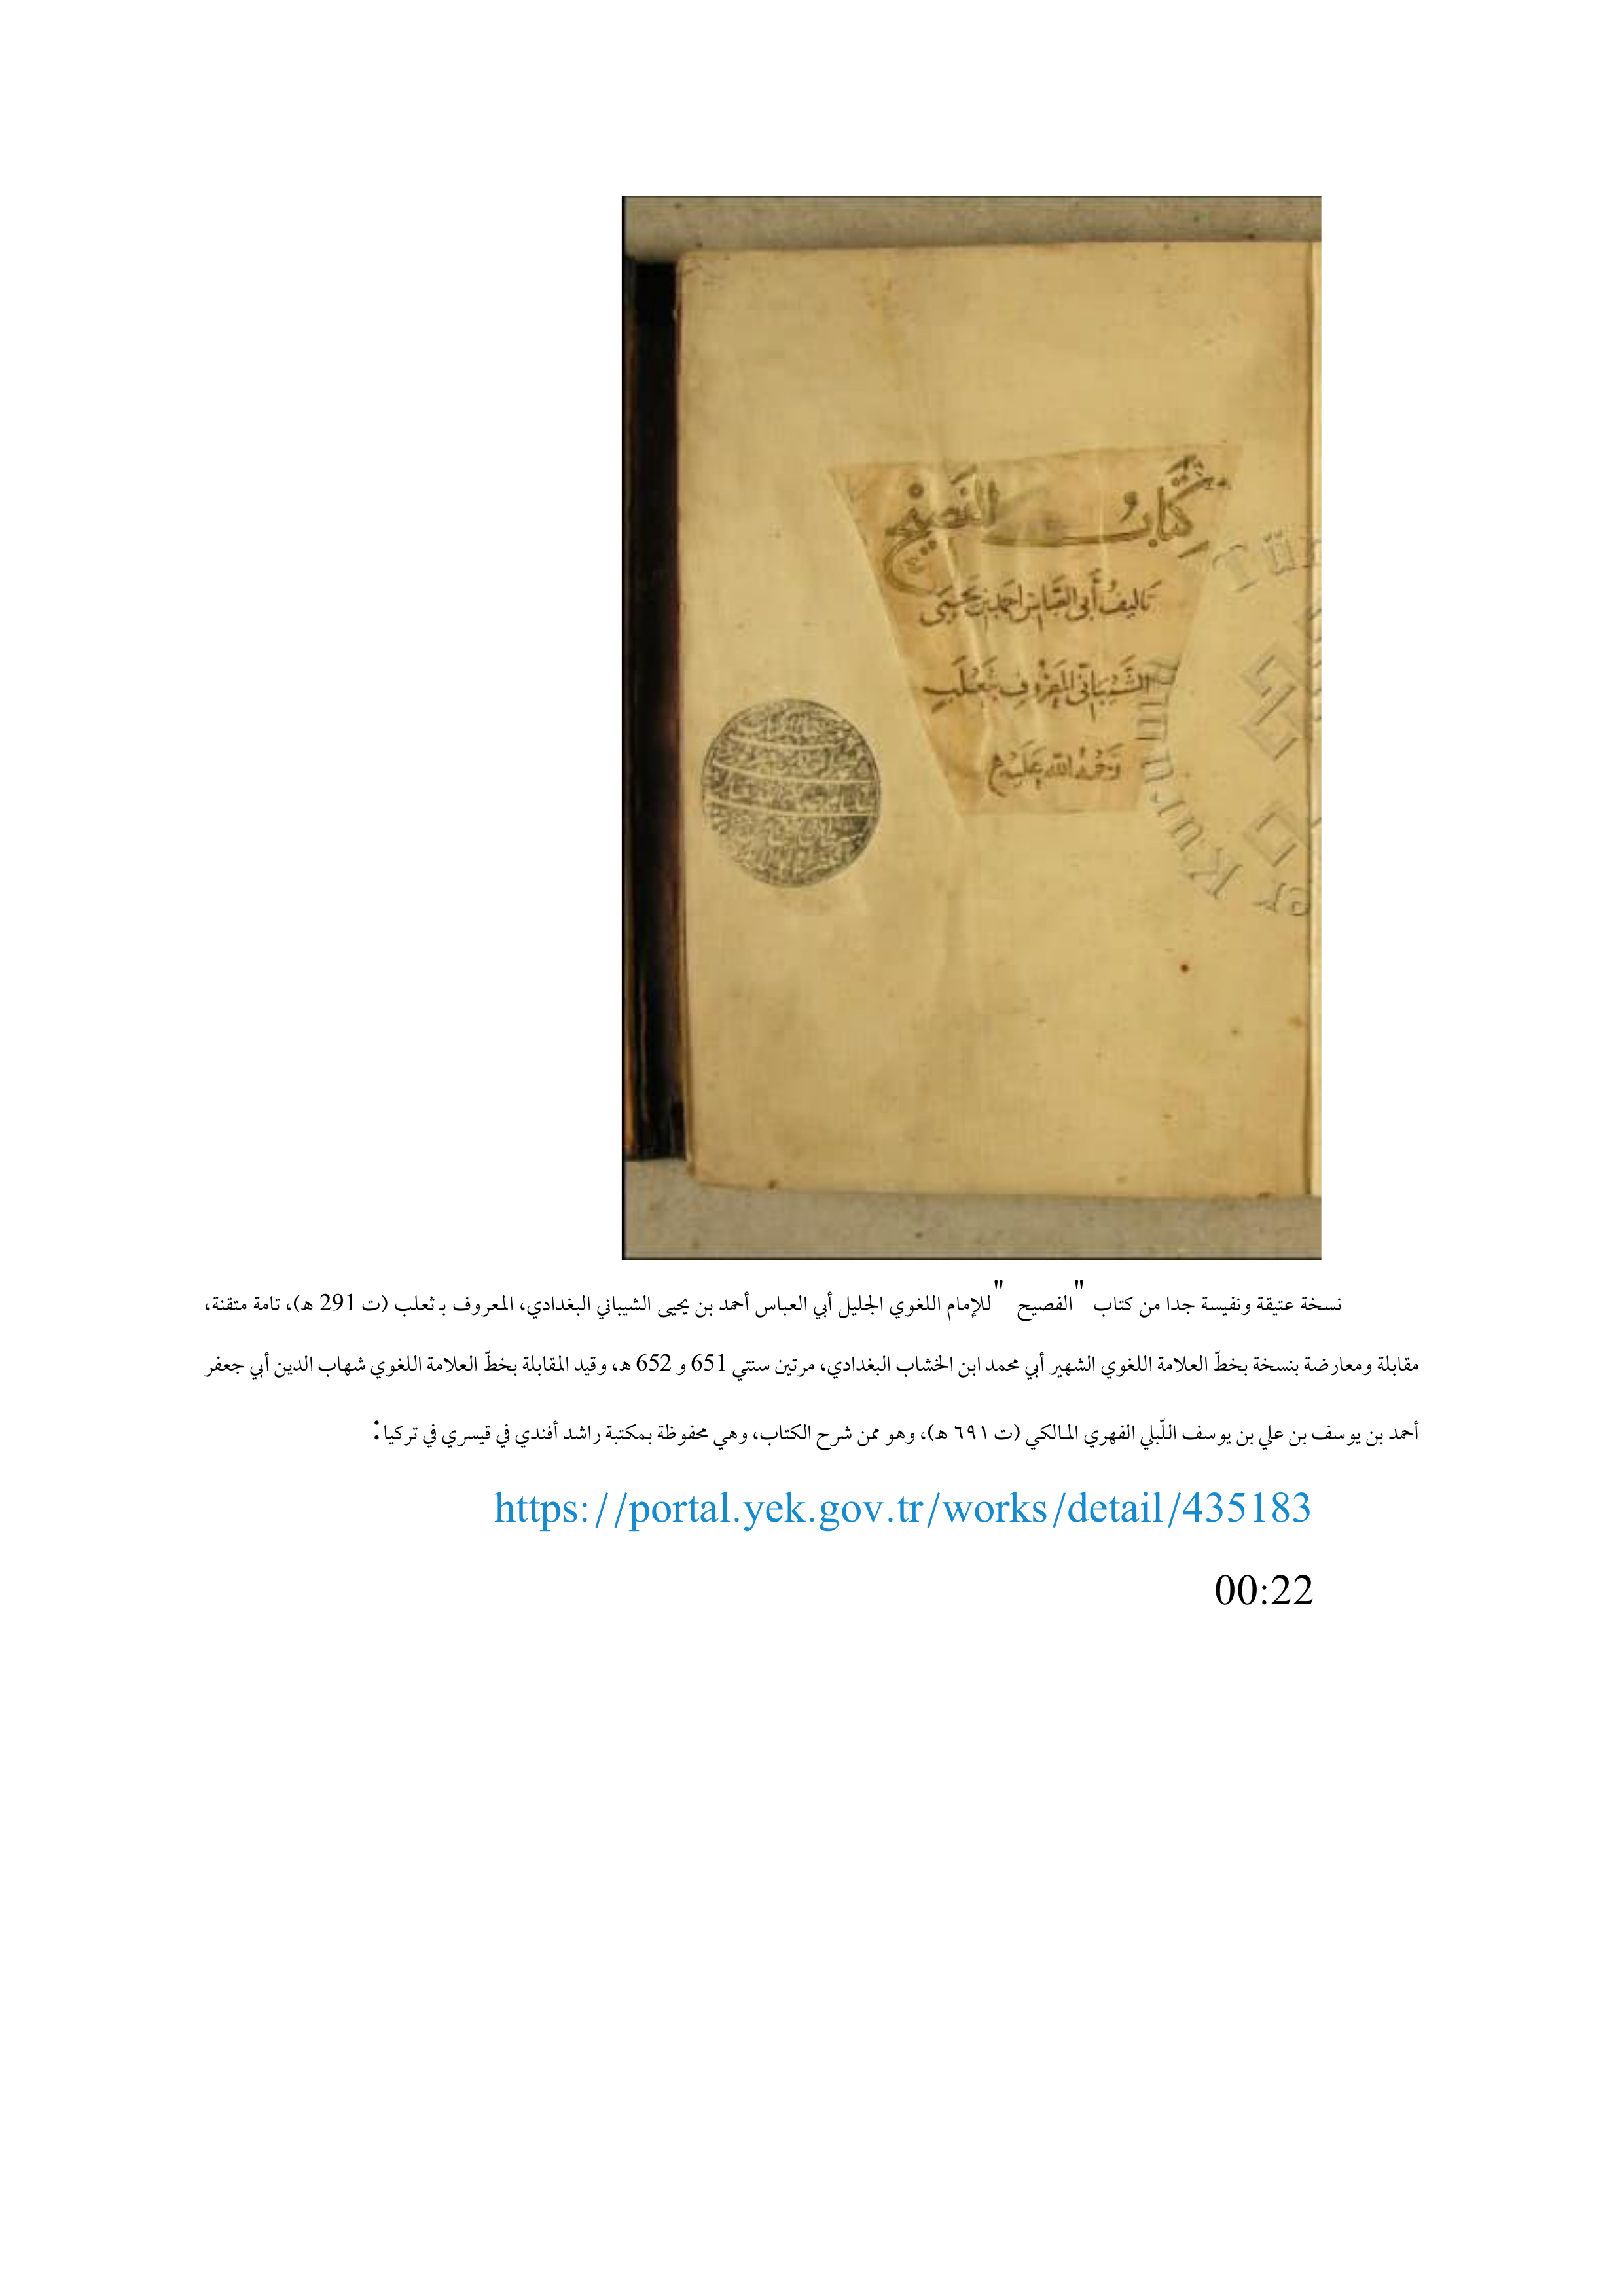 كِتَابُ الفَصِيْحِ
تَالِيفُ أَبِى العَبَّاسِ احمد بن يَحيَى
الشَّيْبَانِىّ المَعْرُوفِ بثَعْلَبٍ
رَحْمَةُ اللّه عَلَيْهِ
نسخة عتيقة ونفيسة جدا من كتاب "الفصيح" للإمام اللغوي الجليل أبي العباس أحمد بن يحيى الشيباني البغدادي، المعروف بـ ثعلب (ت 291 هـ)، تامة متقنة،
مقابلة ومعارضة بنسخة بخطّ العلامة اللغوي الشهير أبي محمد ابن الخشاب البغدادي، مرتين سنتي 651 و 652 هـ، وقيد المقابلة بخطّ العلامة اللغوي شهاب الدين أبي جعفر
أحمد بن يوسف بن علي بن يوسف اللّبلي الفهري المالكي (ت ٦٩١ هـ)، وهو ممن شرح الكتاب، وهي محفوظة بمكتبة راشد أفندي في قيسري في تركيا:
https://portal.yek.gov.tr/works/detail/435183
00:22